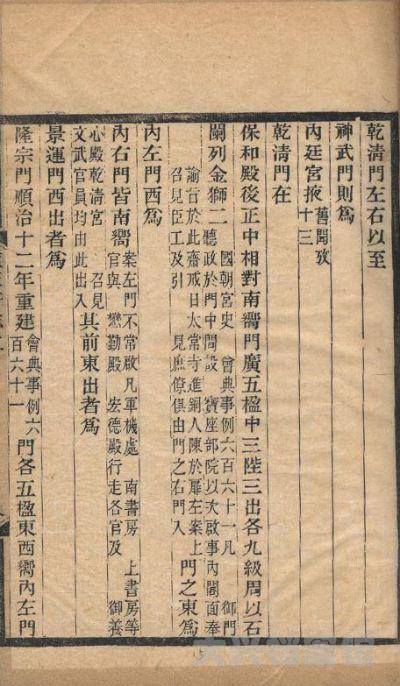 乾清門左右以至
神武門則爲
內廷宮掖舊聞攷十三
乾清門在
保和殿後正中相對南嚮門廣五楹中三陛三出各九級周以石
闌列金獅二國朝宮史 會典事例六百六十一凡 御門聽政於門中間設 寶座部院以次啟事內閣面奉
諭旨於此齋戒日太常寺進銅人陳於扉左案上召見臣工及引 見庶僚俱由門之右門入門之東爲
內左門西爲
內右門皆南嚮案左門不常啟凡軍機處 南書房 上書房等官與 懋勤殿 宏德殿行走各官及 御養
心殿乾清宮 召見文武官員均由此出入其前東出者爲
景運門西出者爲
隆宗門順治十二年重建會典事例六百六十一門各五楹東西嚮內左門